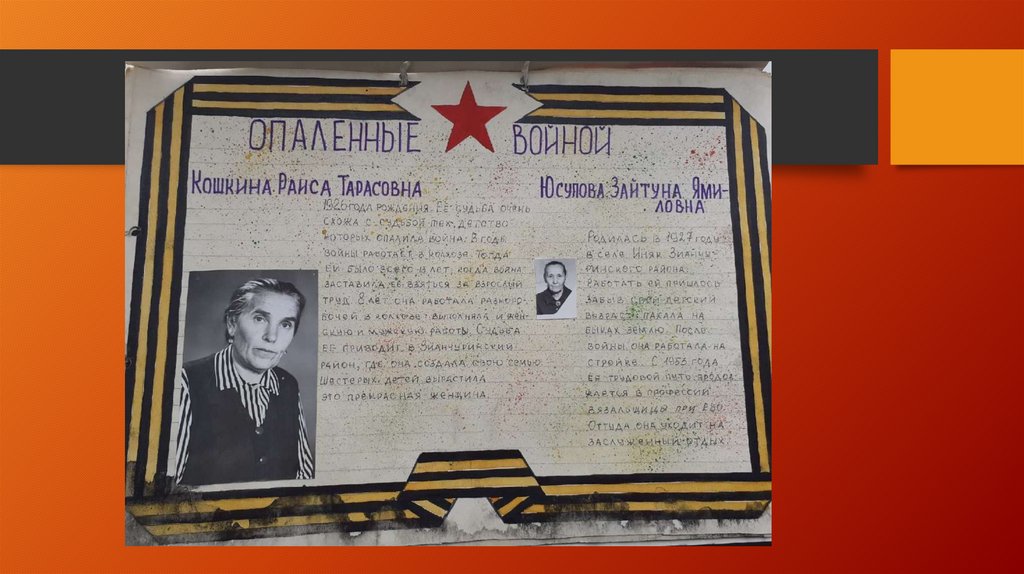 ОПАЛЕННЫЕ ВОЙНОЙ
КОШКИНА РАИСА ТАРАСОВНА
1926 ГОДА РОЖДЕНИЯ. ЕЁ СУДЬБА ОЧЕНЬ
СХОЖА С СУДЬБОЙ ТЕХ, ДЕТСТВО
КОТОРЫХ ОПАЛИЛА ВОЙНА. В ГОДЫ
ВОЙНЫ РАБОТАЕТ В КОЛХОЗЕ. ТОГДА
ЕЙ БЫЛО ВСЕГО ЛЕТ, КОГДА ВОЙНА
ЗАСТАВИЛА ЕЁ ВЗЯТЬСЯ ЗА ВЗРОСЛЫЙ
ТРУД. 8 ЛЕТ ОНА РАБОТАЛА РАЗНОРО-
БОЧЕЙ В КОЛХОЗЕ ВЫПОЛНЯЛА И ЖЕН-
СКУЮ И МУЖСКУЮ РАБОТУ. СУДЬБА
ЕЁ ПРИВОДИТ В ЗИАНЧУРИНСКИЙ
РАЙОН, ГДЕ ОНА СОЗДАЛА СВОЮ СЕМЬЮ
ШЕСТЕРЫХ ДЕТЕЙ ВЫРАСТИЛА
ЭТО ПРЕКРАСНАЯ ЖЕНЩИНА.
ЮСУПОВА ЗАЙТУНА ЯМИ-
ЛОВНА
РОДИЛАСЬ В 1927 ГОДУ
В СЕЛЕ ИНЯК ЗИАНЧУ-
РИНСКОГО РАЙОНА.
РАБОТАТЬ ЕЙ ПРИШЛОСЬ
ЗАБЫВ СВОЙ ДЕТСКИЙ
ВОЗРАСТ ПАХАЛА НА
БЫКАХ ЗЕМЛЮ. ПОСЛЕ
ВОЙНЫ ОНА РАБОТАЛА НА
СТРОЙКЕ. С 1953 ГОДА
ЕЁ ТРУДОВОЙ ПУТЬ ПРОДОЛ
ЖАЕТСЯ В ПРОФЕССИИ
ВЯЗАЛЬЩИЦЫ ПРИ
ОТТУДА ОНА УХОДИТ НА
ЗАСЛУЖЕННЫЙ ОТДЫХ